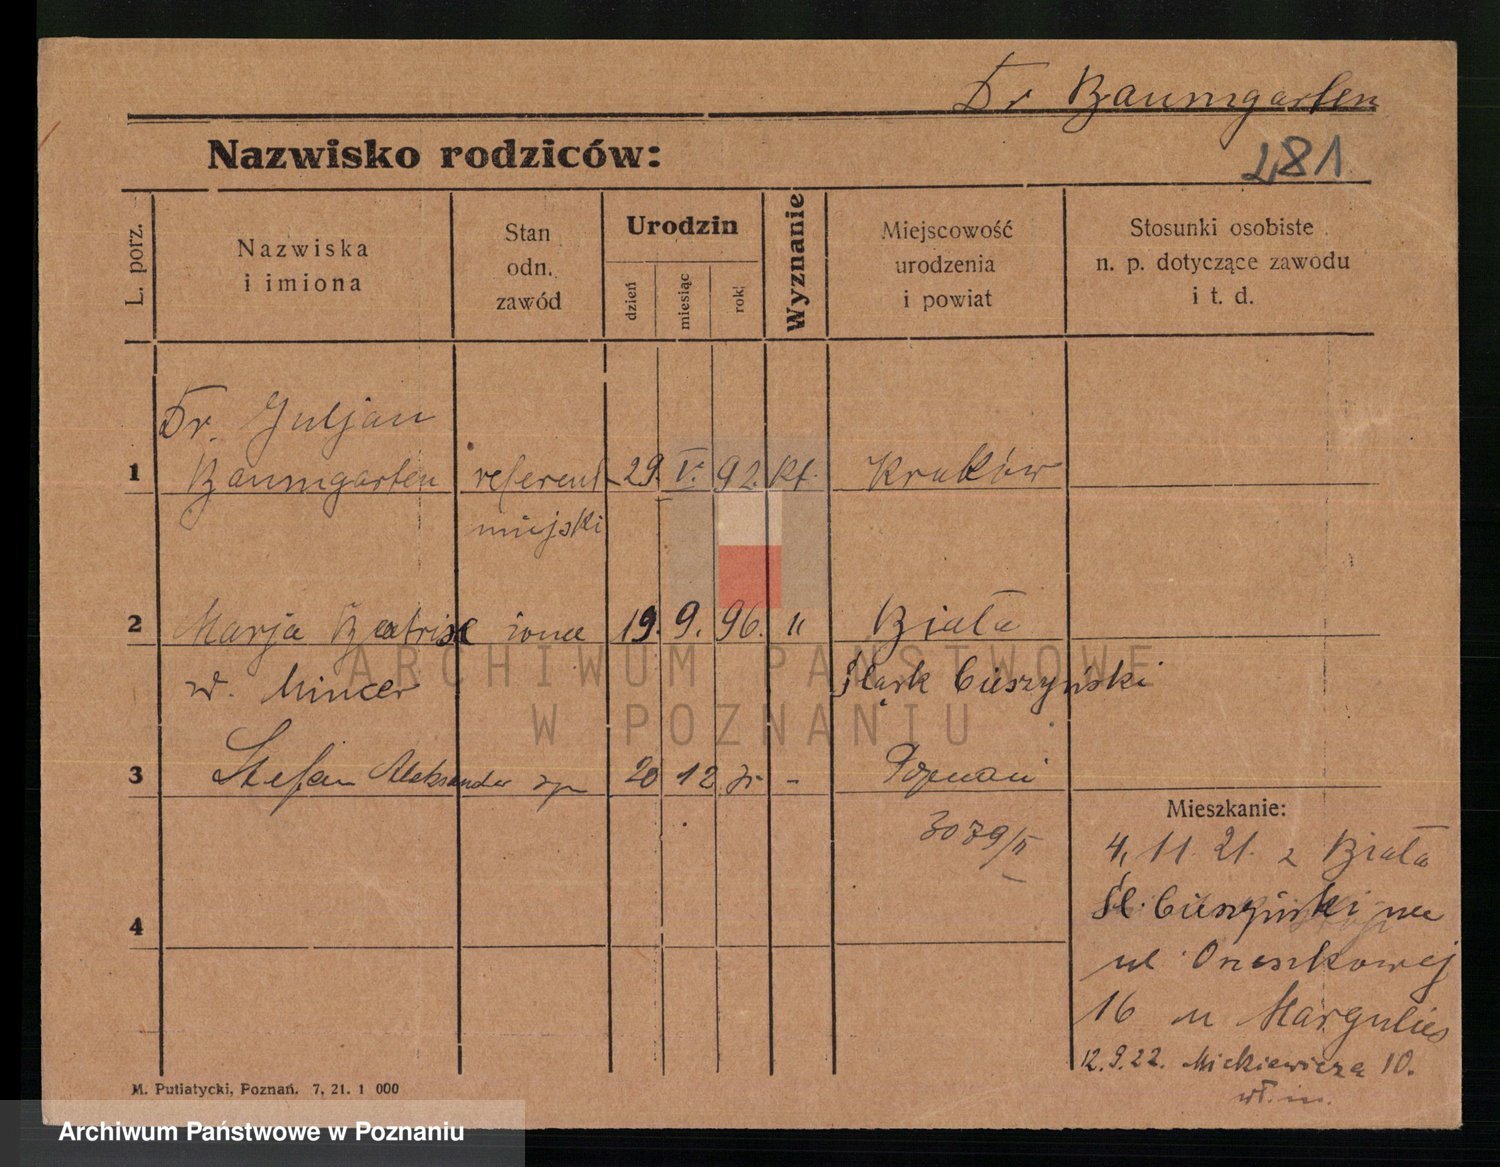 Dr Baumgarten
Nazwisko rodziców:
481
L. porz.
Nazwiska
i imiona
Stan
odn.
zawód
Urodzin
dzień
miesiąc
rok
Wyznanie
Miejscowość
urodzenia
i powiat
Stosunki osobiste
n. p. dotyczące zawodu
i t. d.
Dr. Juljan
1 Baumgarten referent 29. V. 92. kt. Kraków
miejski
2 Marja Beatrise żona 19. 9. 96. " Biała
w. Mincer Śląsk Cieszyński
3 Stefan Aleksander 20 12 - Poznań
Mieszkanie:
3079/II
4, 11. 21. z Biała
Śl. Cieszyński na
4
ul Orzeszkowej
16 u Margulies
12.9.22. Mickiewicza 10.
wł. m.
M. Putiatycki, Poznań. 7, 21. 1 000
ARCHIWUM PAŃSTWOWE
W POZNANIU
Archiwum Państwowe w Poznaniu